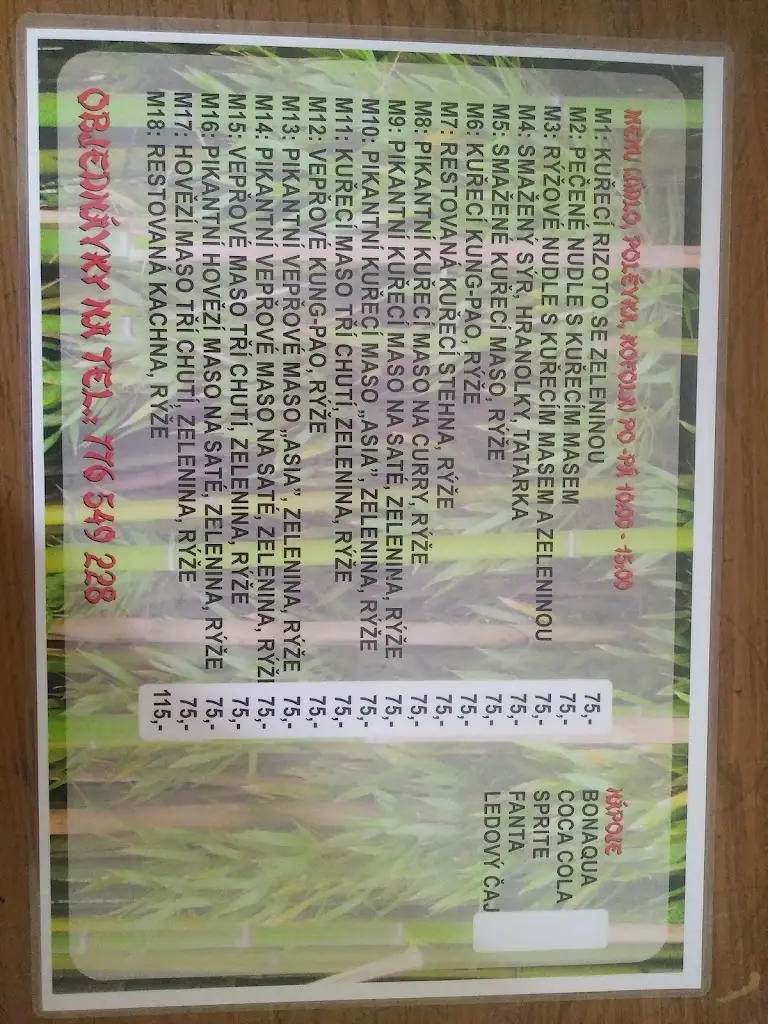 MENU (JÍDLO, POLÉVKA, KOFOLA) PO -PÁ 10:00 - 15:00
M1: KUŘECÍ RIZOTO SE ZELENINOU 75,-
M2: PEČENÉ NUDLE S KUŘECÍM MASEM 75,-
M3: RÝŽOVÉ NUDLE S KUŘECÍM MASEM A ZELENINOU 75,-
M4: SMAŽENÝ SÝR, HRANOLKY, TATARKA 75,-
M5: SMAŽENÉ KUŘECÍ MASO, RÝŽE 75,-
M6: KUŘECÍ KUNG-PAO, RÝŽE 75,-
M7: RESTOVANÁ KUŘECÍ STEHNA, RÝŽE 75,-
M8: PIKANTNÍ KUŘECÍ MASO NA CURRY, RÝŽE 75,-
M9: PIKANTNÍ KUŘECÍ MASO NA SATÉ, ZELENINA, RÝŽE 75,-
M10: PIKANTNÍ KUŘECÍ MASO „ASIA”, ZELENINA, RÝŽE 75,-
M11: KUŘECÍ MASO TŘÍ CHUTÍ, ZELENINA, RÝŽE 75,-
M12: VEPŘOVÉ KUNG-PAO, RÝŽE 75,-
M13: PIKANTNÍ VEPŘOVÉ MASO „ASIA”, ZELENINA, RÝŽE 75,-
M14: PIKANTNÍ VEPŘOVÉ MASO NA SATÉ, ZELENINA, RÝŽE 75,-
M15: VEPŘOVÉ MASO TŘÍ CHUTÍ, ZELENINA, RÝŽE 75,-
M16: PIKANTNÍ HOVĚZÍ MASO NA SATÉ, ZELENINA, RÝŽE 75,-
M17: HOVĚZÍ MASO TŘÍ CHUTÍ, ZELENINA, RÝŽE 75,-
M18: RESTOVANÁ KACHNA, RÝŽE 115,-
OBJEDNÁVKY NA TEL.: 776 549 228
NÁPOJE
BONAQUA
COCA COLA
SPRITE
FANTA
LEDOVÝ ČAJ